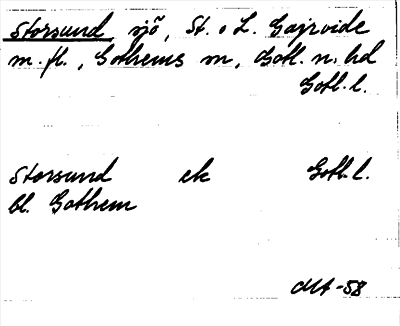 Storsund, sjö, St. o L. Gajrvide
m. fl., Gothems sn, Gotl. n. hd
Gotl. l.
Storsund ek Gotl. l.
bl. Gothem
MA -58